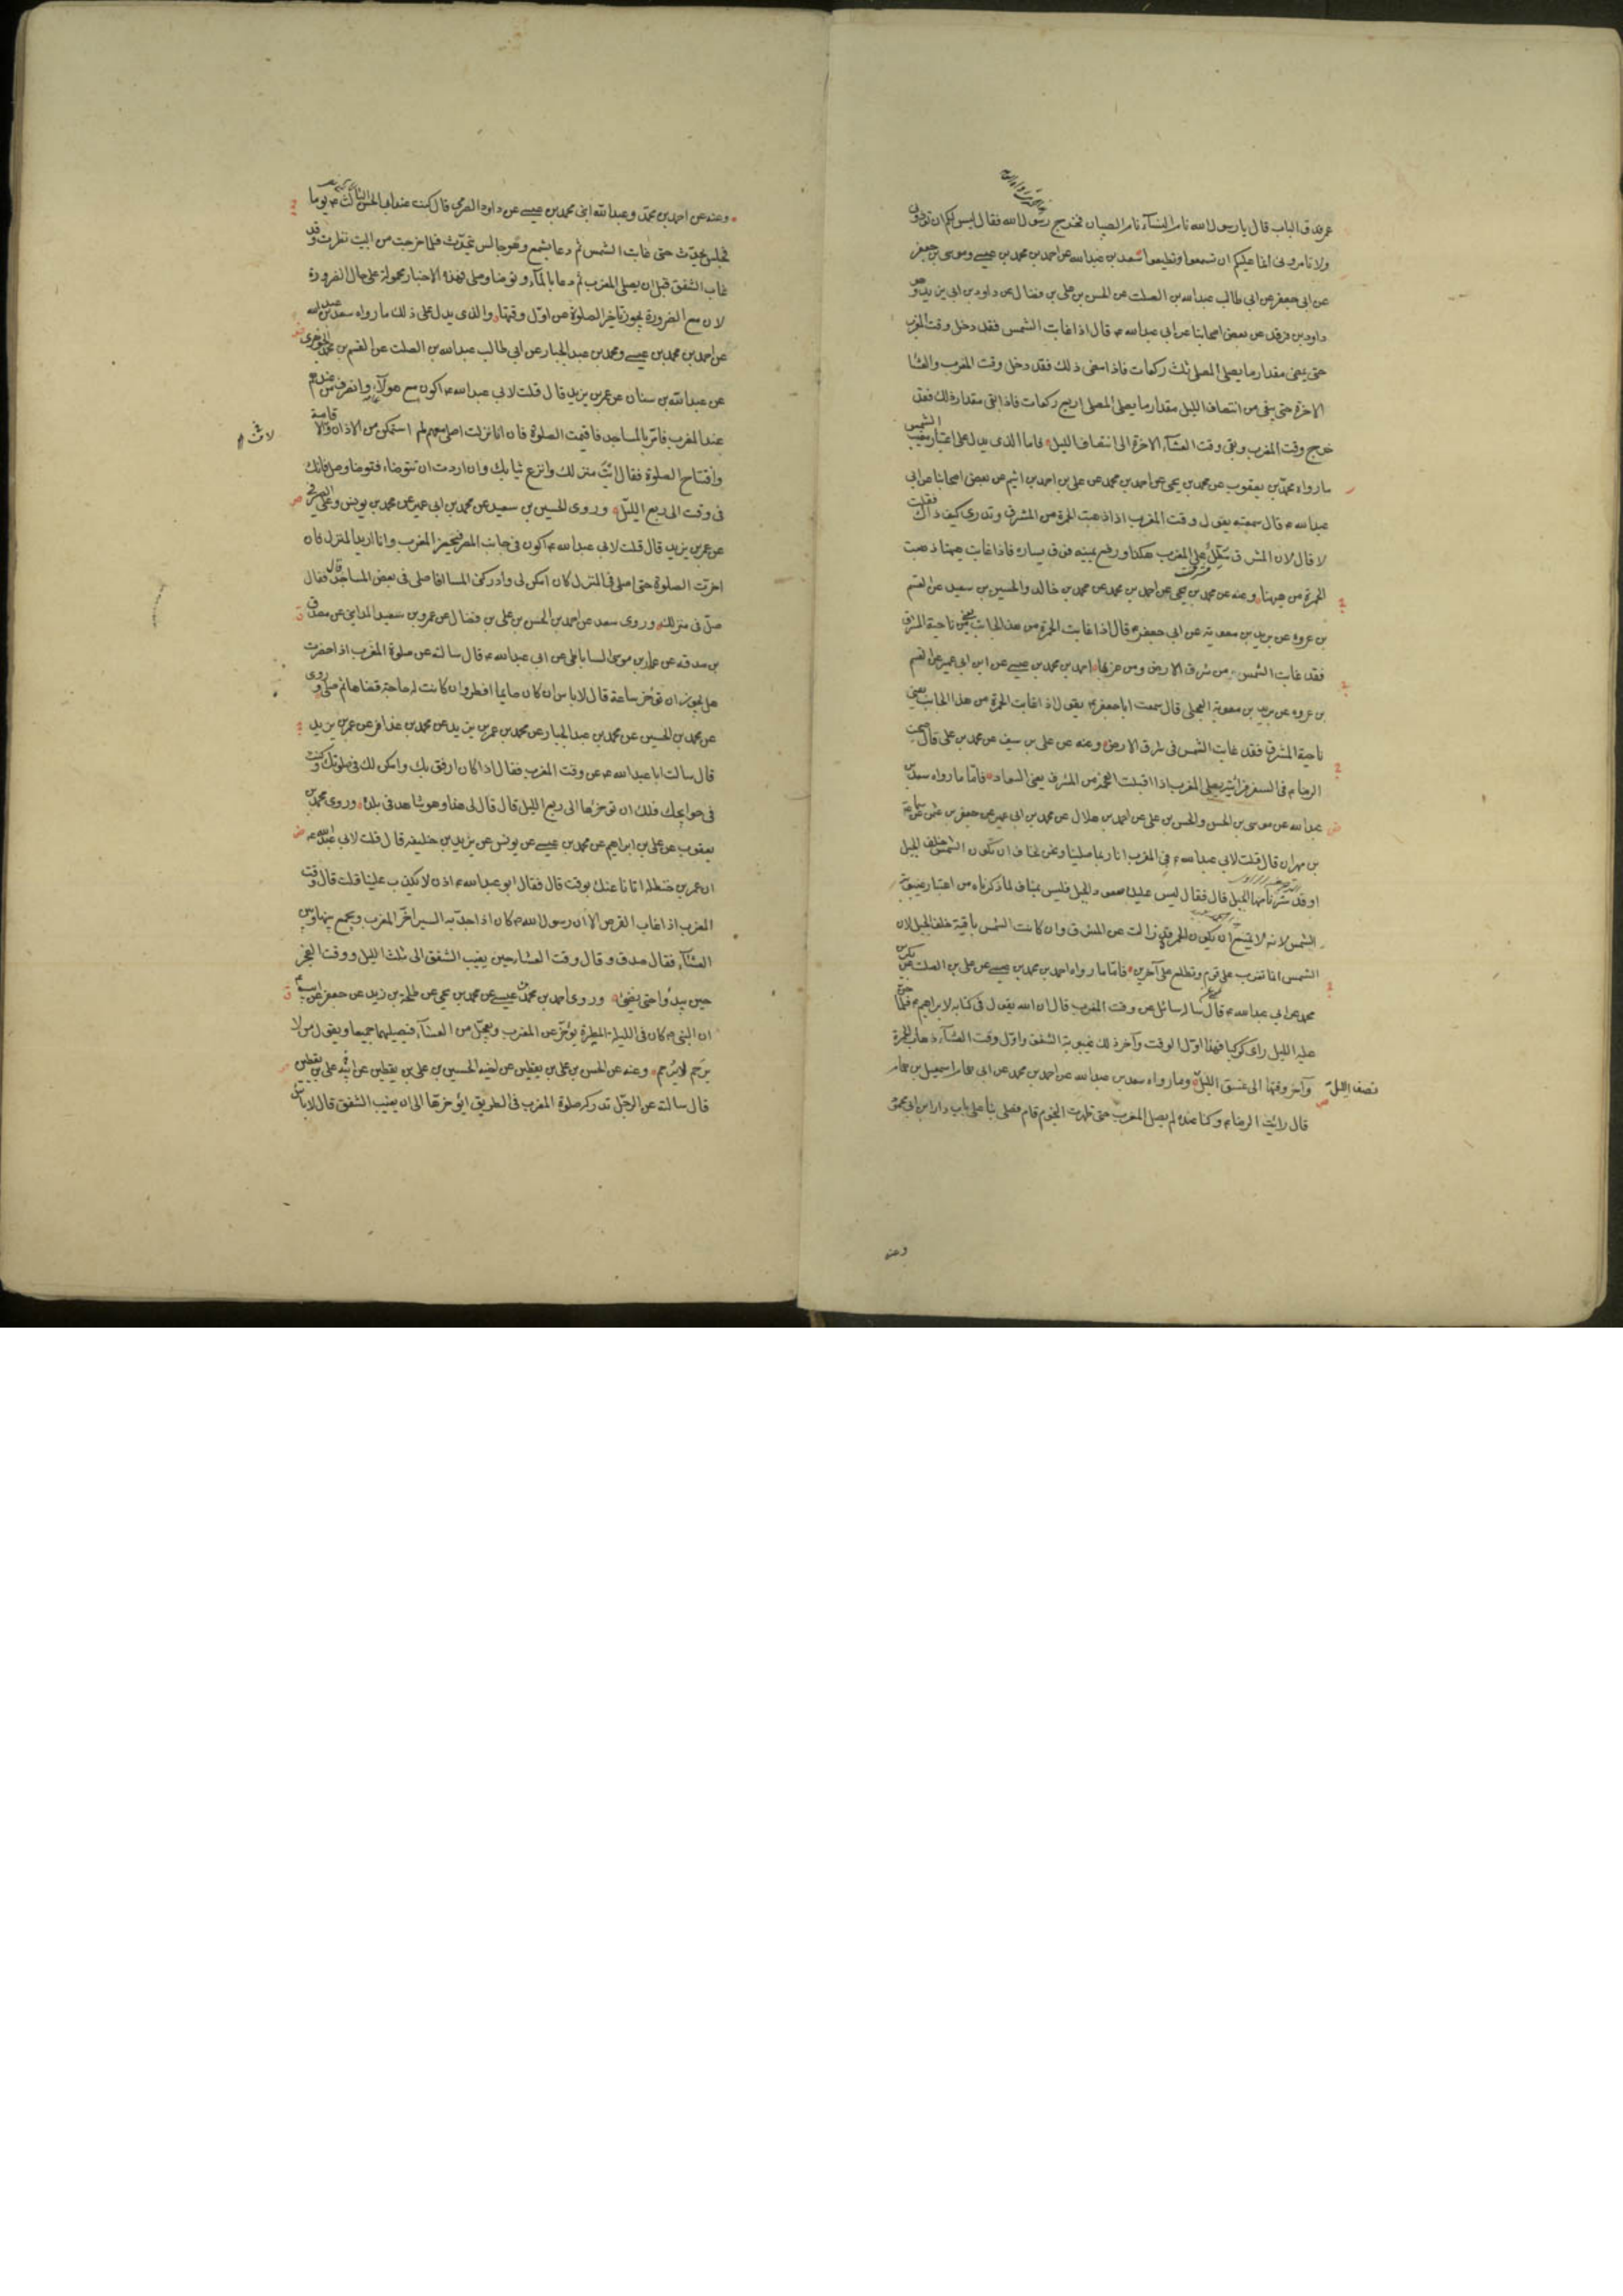 عمر فدق الباب قال يا رسول الله نام النسآء نام الصبيان فخرج رسول الله فقال ليس لكم ان تؤذونى
ولا تامرونى انما عليكم ان تسمعوا وتطيعوا سعد بن عبد الله عن احمد بن محمد بن عيسى وموسى بن جعفر
عن ابى جعفر عن ابى طالب عبد الله بن الصلت عن الحسن بن على بن فضال عن داود بن ابى يزيد وهو
داود بن فرقد عن بعض اصحابنا عن ابى عبد الله ع قال اذا غابت الشمس فقد دخل وقت المغرب
حتى يمضى مقدار ما يصلى المصلى ثلث ركعات فاذا مضى ذلك فقد دخل وقت المغرب والعشا
الاخرة حتى يبقى من انتصاف الليل مقدار ما يصلى المصلى اربع ركعات فاذا بقى مقدار ذلك فقد
خرج وقت المغرب وبقى وقت العشآء الاخرة الى انتصاف الليل فاما الذى يدل على اعتبار مغيب الشمس
ما رواه محمد بن يعقوب عن محمد بن يحيى عن احمد بن محمد عن على بن احمد بن اشيم عن بعض اصحابنا عن ابى
عبد الله ع قال سمعته يقول وقت المغرب اذا ذهبت الحمرة من المشرق وتدرى كيف ذاك فقلت
لا قال لان المشرق مطلّ على المغرب هكذا ورفع يمينه فوق يساره فاذا غابت ههنا ذهبت
الحمرة من ههنا وعنه عن محمد بن يحيى عن احمد بن محمد عن محمد بن خالد والحسين بن سعيد عن القسم
بن عروه عن بريد بن معوية عن ابى جعفر ع قال اذا غابت الحمرة من هذا الجانب يعنى ناحية المشرق
فقد غابت الشمس من شرق الارض ومن غربها احمد بن محمد بن عيسى عن ابن ابى عمير عن القسم
بن عروه عن بريد بن معوية العجلى قال سمعت ابا جعفر ع يقول اذا غابت الحمرة من هذا الجانب يعنى
ناحية المشرق فقد غابت الشمس فى شرق الارض وعنه عن على بن سيف عن محمد بن على قال صحبت
الرضا ع فى السفر فرأيته يصلى المغرب اذا اقبلت الفحمة من المشرق يعنى السواد فامّا ما رواه سعد بن
عبد الله عن موسى بن الحسن والحسن بن على عن احمد بن هلال عن محمد بن ابى عمير عن جعفر بن عثمن عن سماعة
بن مهران قال قلت لابى عبد الله ع فى المغرب انا ربما صلينا ونحن نخاف ان تكون الشمس خلف الجبل
او قد سترنا منها الجبل قال فقال ليس عليك صعود الجبل فليس بمناف لما ذكرناه من اعتبار غيبوبة
الشمس لانه لا يمتنع ان يكون الحمرة قد زالت عن المشرق وان كانت الشمس باقية خلف الجبل لان
الشمس انما تغرب على قوم وتطلع على آخرين فامّا ما رواه احمد بن محمد بن عيسى عن على بن الصلت عن بكر بن
محمد عن ابى عبد الله ع قال ساله سائل عن وقت المغرب قال ان الله يقول فى كتابه لابراهيم ع فلما جن
عليه الليل راى كوكبا فهذا اوّل الوقت وآخر ذلك غيبوبة الشفق واوّل وقت العشآء ذهاب الحمرة
وآخر وقتها الى غسق الليل وما رواه سعد بن عبد الله عن احمد بن محمد عن ابى همام اسمعيل بن همام
نصف الليل
قال رايت الرضا ع وكنا عنده لم يصل المغرب حتى ظهرت النجوم قام فصلى بنا على باب دار ابن ابى محمود
وعنه
وعنه عن احمد بن محمد وعبد الله ابنى محمد بن عيسى عن داود الصرمى قال كنت عند ابى الحسن الثالث ع يوما
فجلس يحدّث حتى غابت الشمس ثم دعا بشمع وهو جالس يتحدّث فلما خرجت من البيت نظرت وقد
غاب الشفق قبل ان يصلى المغرب ثم دعا بالمآء وتوضا وصلى فهذه الاخبار محمولة على حال الضرورة
لان مع الضرورة يجوز تاخير الصلوة عن اوّل وقتها والذى يدل على ذلك ما رواه سعد بن عبد الله
عن احمد بن محمد بن عيسى ومحمد بن عبد الجبار عن ابى طالب عبد الله بن الصلت عن القسم بن محمد الجوهرى
عن عبد الله بن سنان عن عمر بن يزيد قال قلت لابى عبد الله ع اكون مع هولآء وانصرف من عندهم
عند المغرب فامرّ بالمساجد فاقيمت الصلوة فان انا نزلت اصلى معهم لم استمكن من الاذان والاقامة
وافتتاح الصلوة فقال ائت منزلك وانزع ثيابك وان اردت ان تتوضاء فتوضا وصل فانك
فى وقت الى ربع الليل وروى الحسين بن سعيد عن محمد بن ابى عمير عن محمد بن يونس وعلى الصيرفى
عن عمر بن يزيد قال قلت لابى عبد الله ع اكون فى جانب المصر فتحضر المغرب وانا اريد المنزل فان
اخرت الصلوة حتى اصلى فى المنزل كان امكن لى وادركنى المسا افاصلى فى بعض المساجد قال فقال
صلّ فى منزلك وروى سعد عن احمد بن الحسن بن على بن فضال عن عمرو بن سعيد المداينى عن مصدق
بن صدقه عن عمار بن موسى الساباطى عن ابى عبد الله ع قال سالته عن صلوة المغرب اذا حضرت
هل يجوز ان تؤخر ساعة قال لا باس ان كان صايما افطر وان كانت له حاجة قضاها ثم صلى وروى
عن محمد بن الحسين عن محمد بن عبد الجبار عن محمد بن عمر بن يزيد عن محمد بن عذافر عن عمر بن يزيد
قال سالت ابا عبد الله ع عن وقت المغرب فقال اذا كان ارفق بك وامكن لك فى صلوتك وكنت
فى حوايجك فلك ان توخرها الى ربع الليل قال قال لى هذا وهو شاهد فى بلده وروى محمد بن
يعقوب عن على بن ابراهيم عن محمد بن عيسى عن يونس عن يزيد بن خليفه قال قلت لابى عبد الله ع
ان عمر بن حنظلة اتانا عنك بوقت قال فقال ابو عبد الله ع اذن لا يكذب علينا قلت قال وقت
المغرب اذا غاب القرص الا ان رسول الله ص كان اذا جدّ به السير اخّر المغرب ويجمع بينها وبين
العشآء فقال صدق وقال وقت العشاء حين يغيب الشفق الى ثلث الليل ووقت الفجر
حين يبدو حتى يضئ وروى احمد بن محمد بن عيسى عن محمد بن يحيى عن طلحة بن زيد عن جعفر عن ابيه ع
ان النبى ص كان فى الليلة المطيرة يؤخّر عن المغرب ويعجّل من العشآء فيصليهما جميعا ويقول من لا
يرحم لا يرحم وعنه عن الحسن بن على بن يقطين عن اخيه الحسين بن على بن يقطين عن ابيه على بن يقطين
قال سالته عن الرجل تدركه صلوة المغرب فى الطريق ايؤخرها الى ان يغيب الشفق قال لا باس